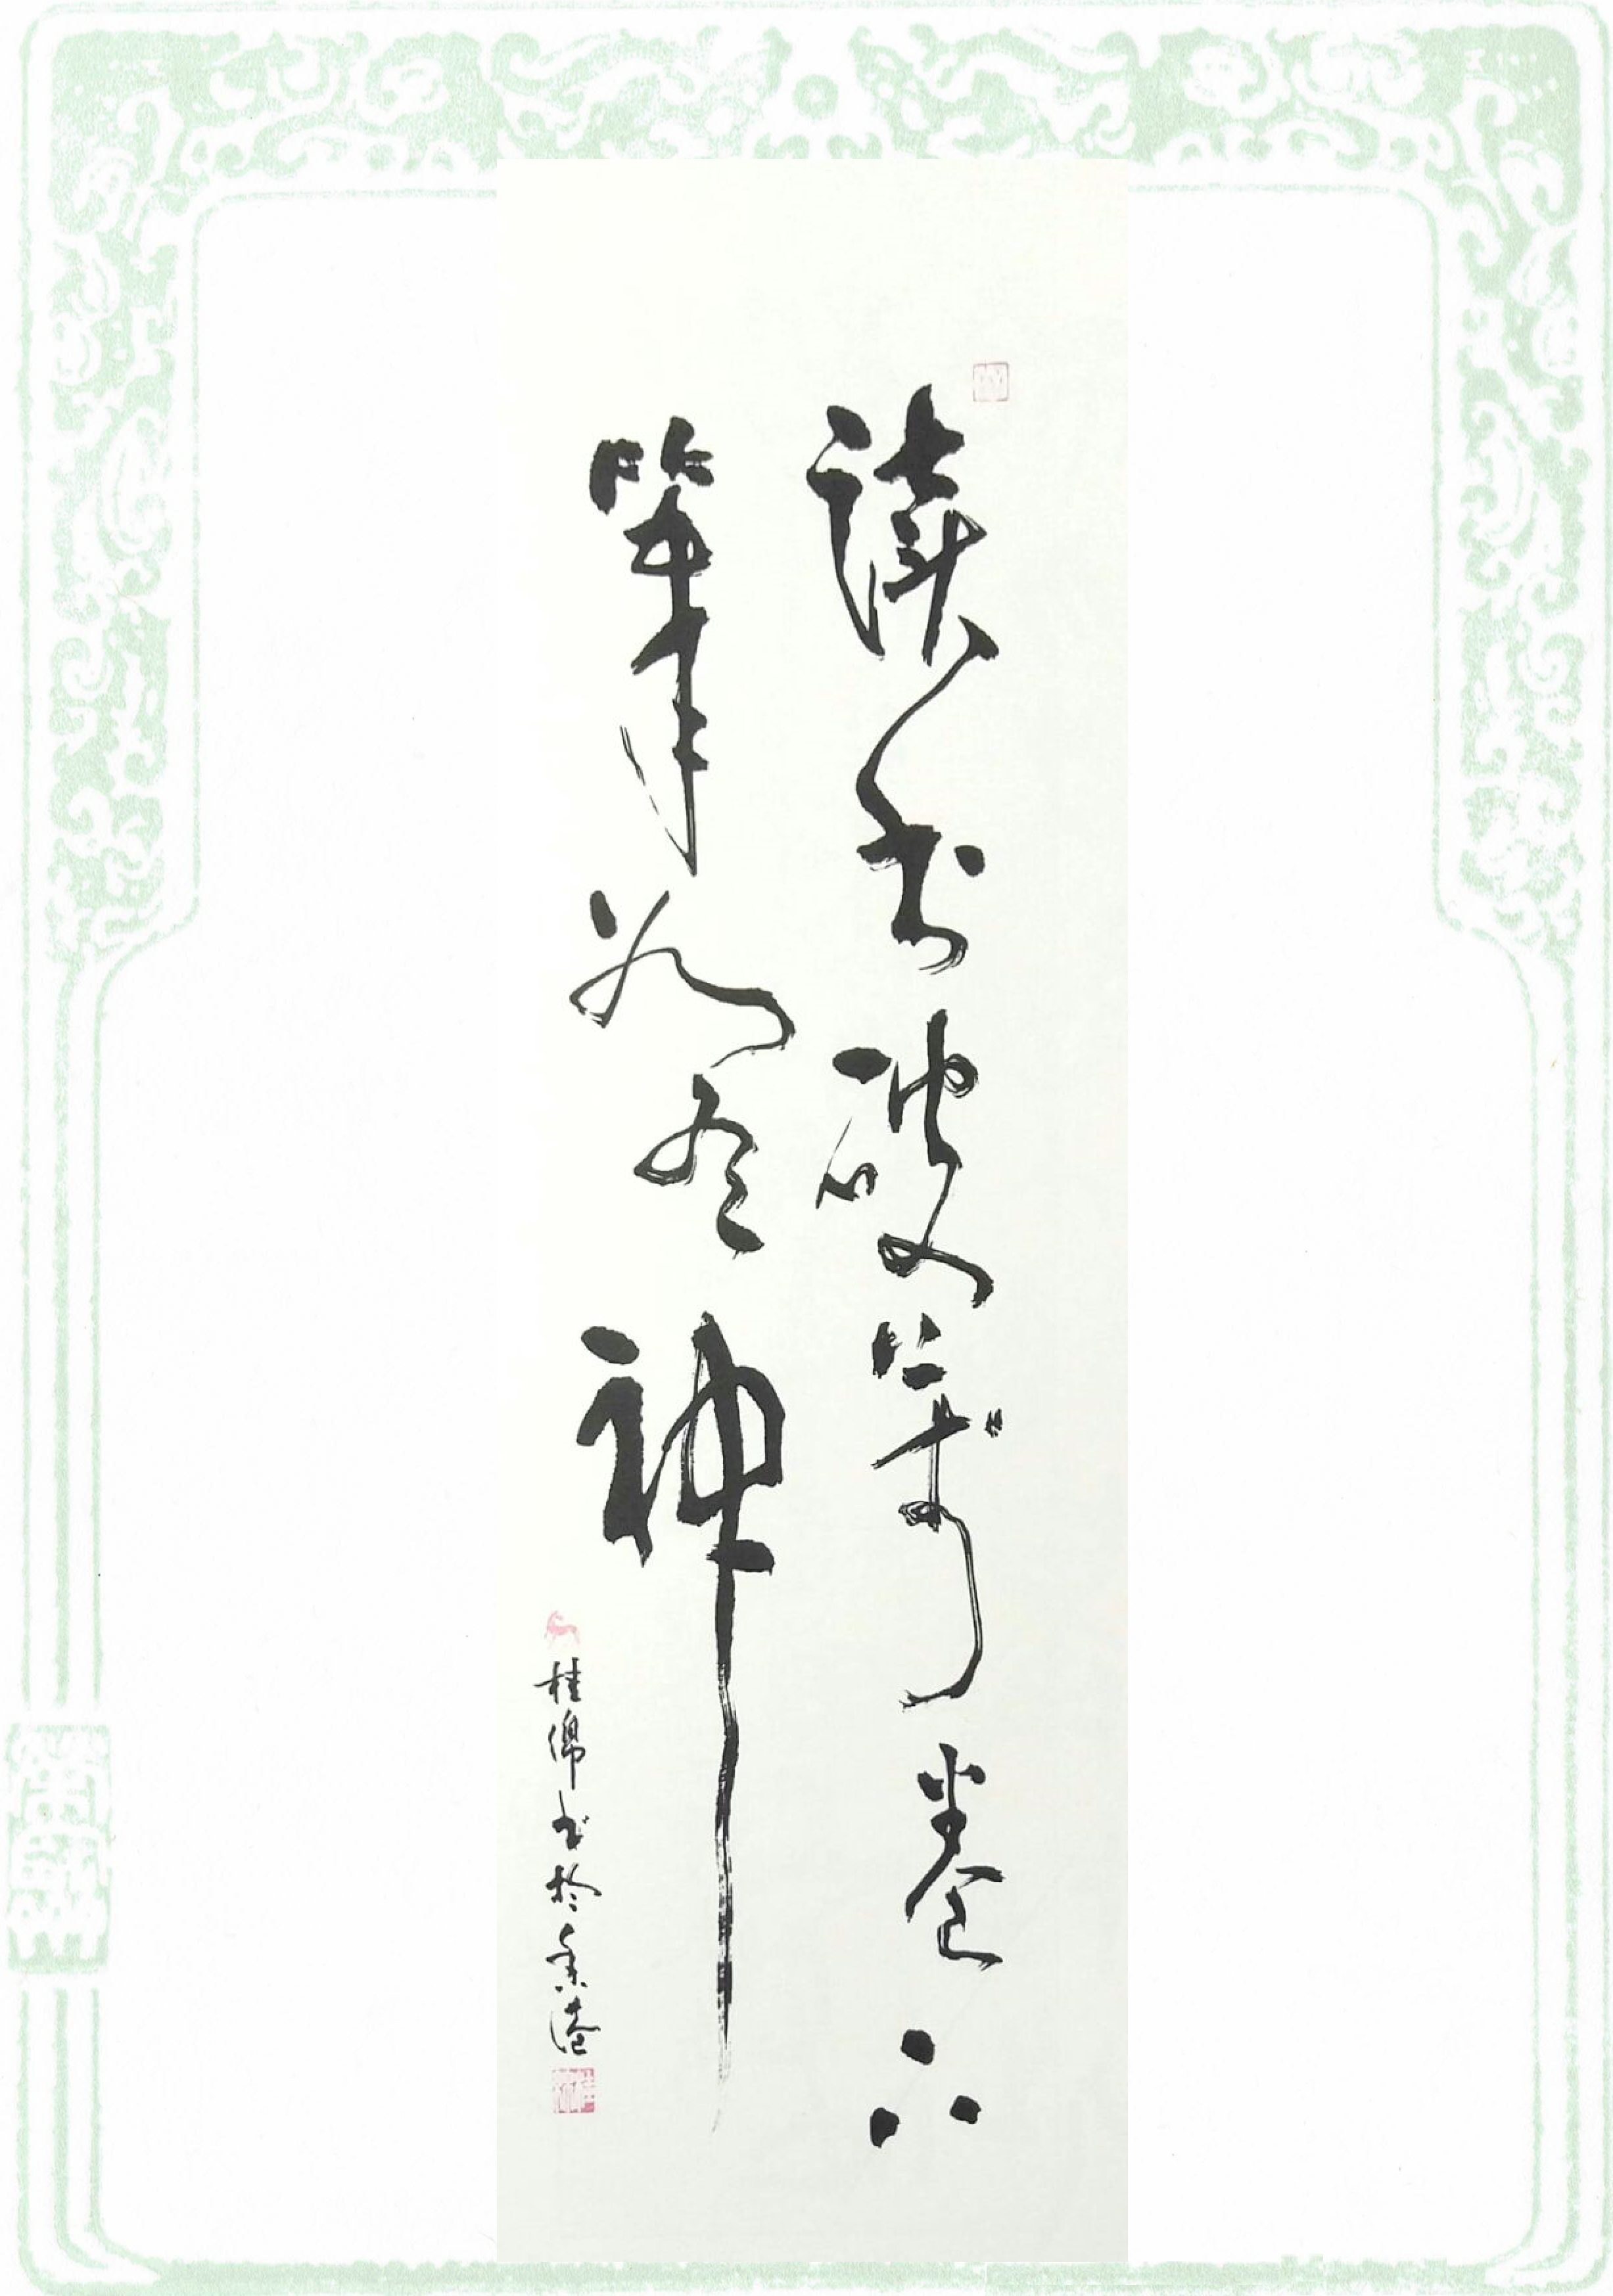 讀書破萬卷下
筆如有神
桂綿書於香港